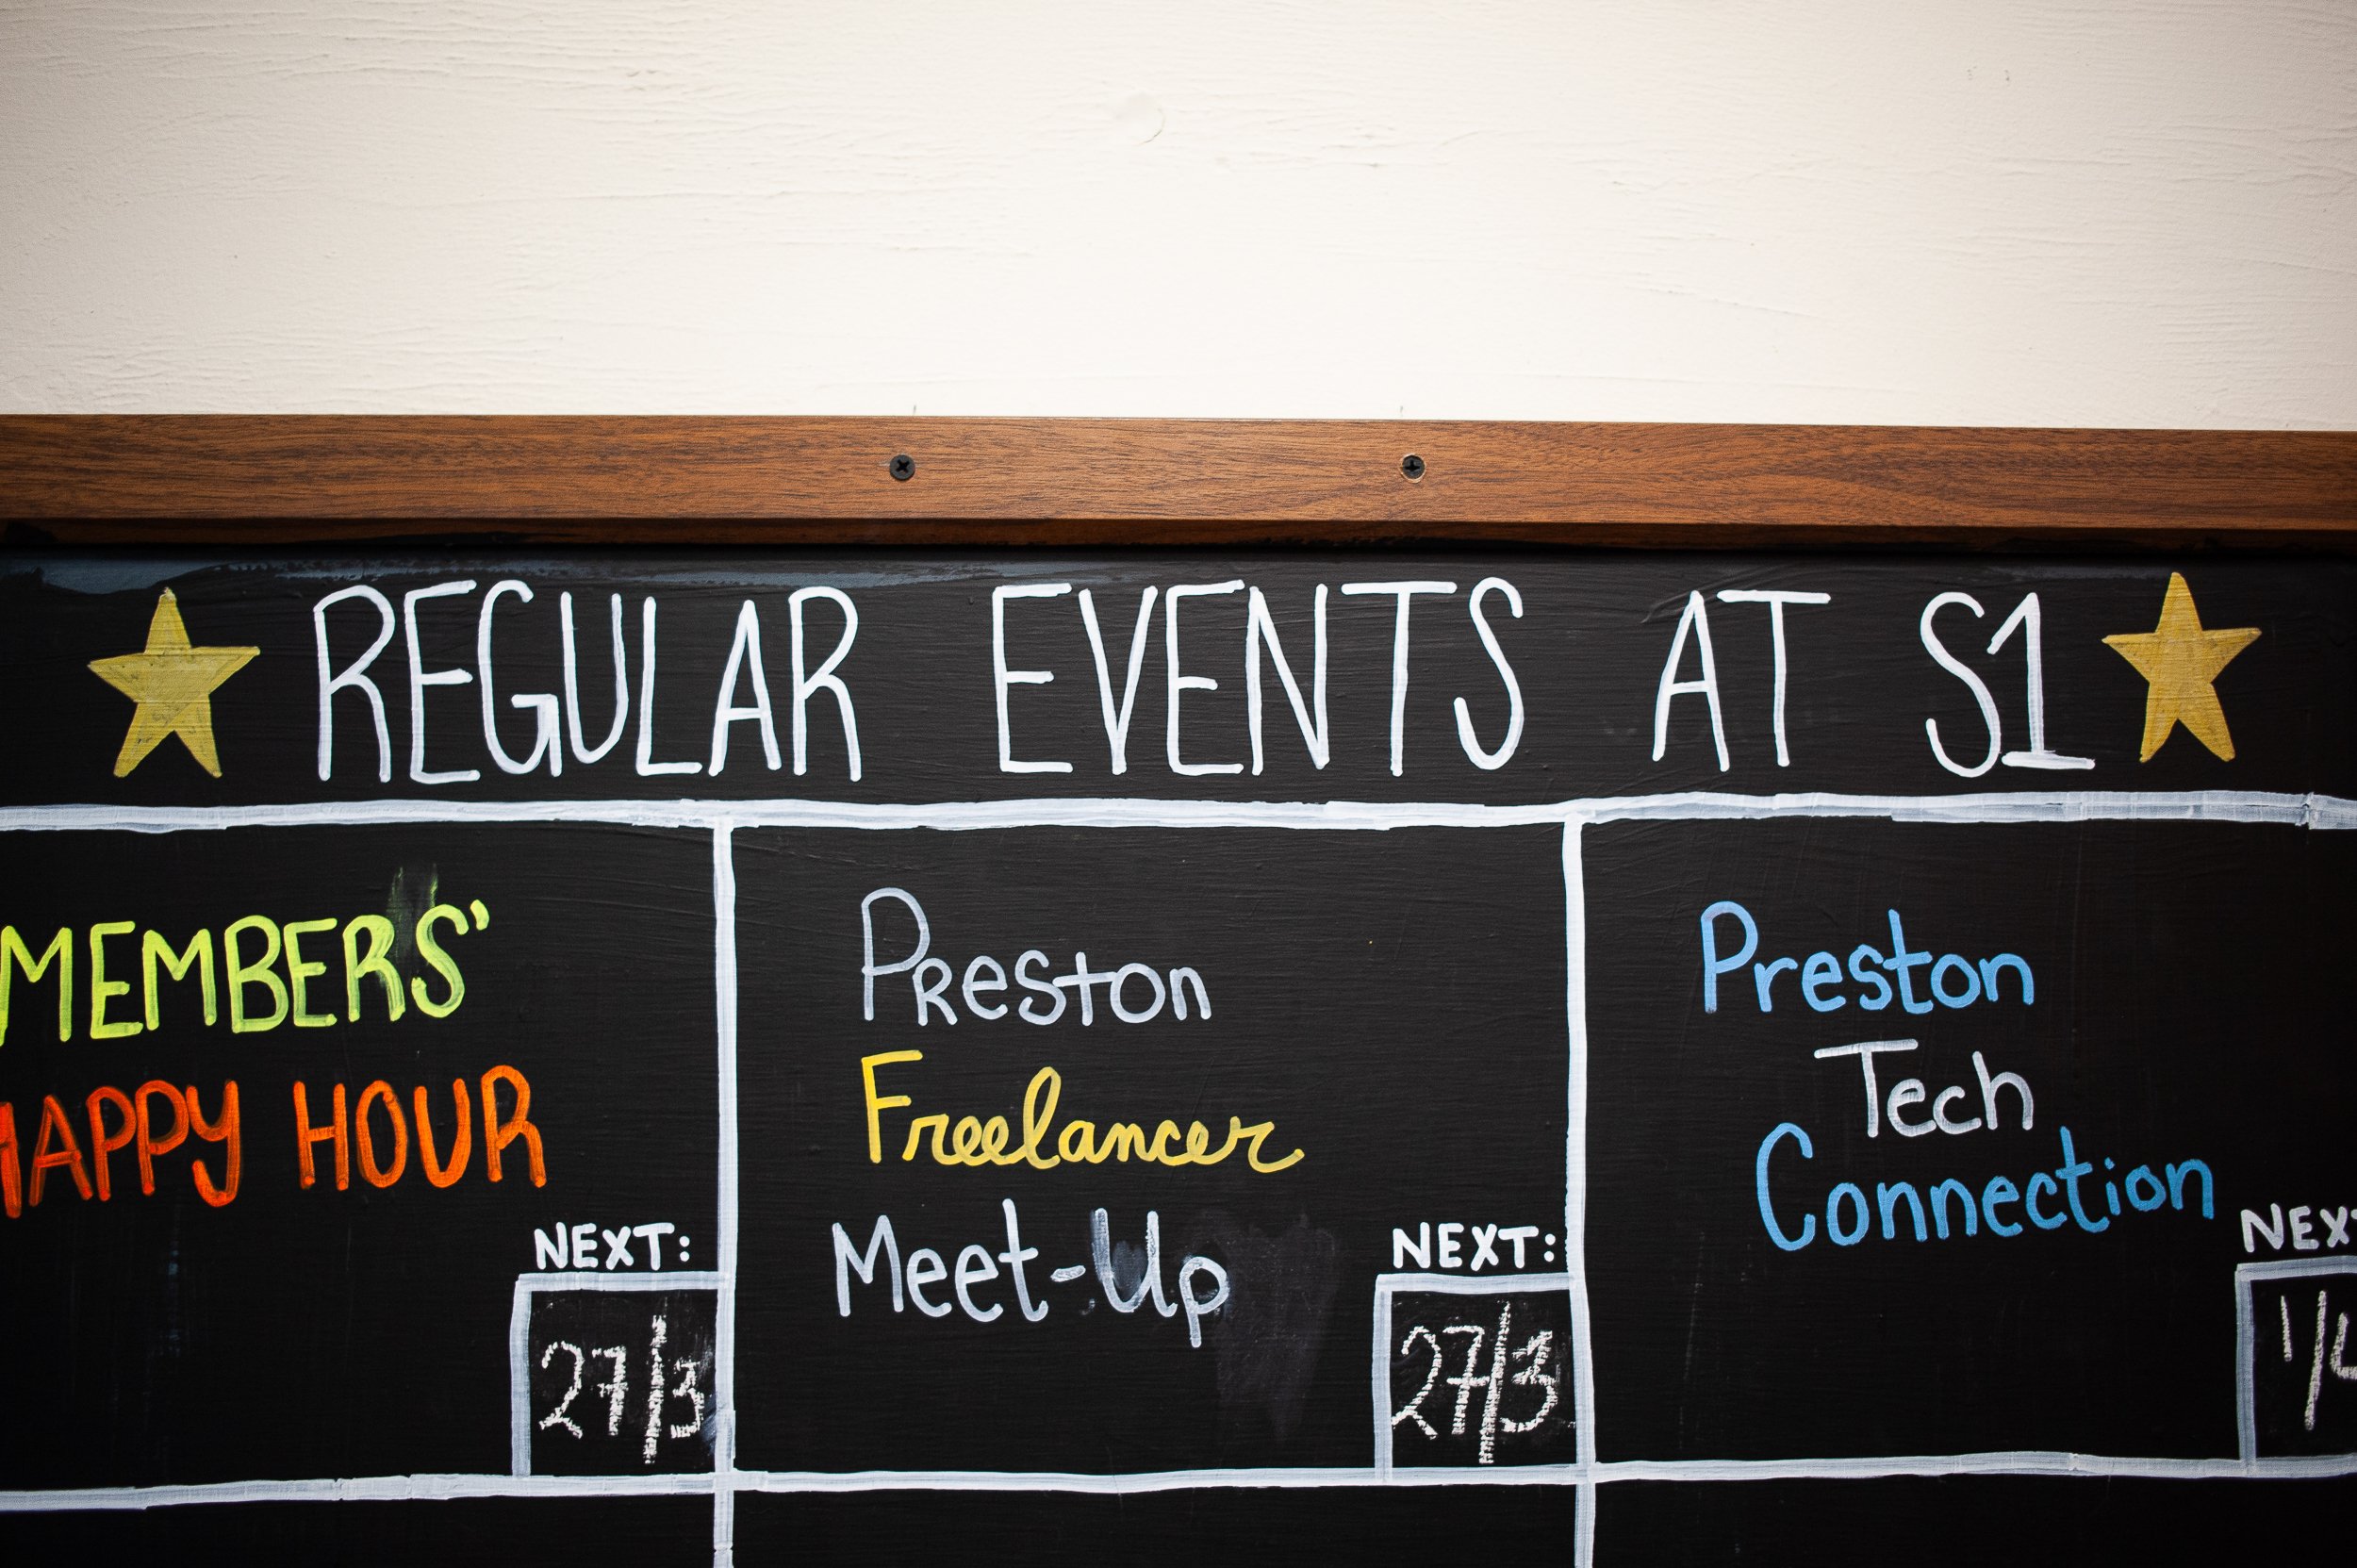 REGULAR EVENTS AT S1
MEMBERS'
HAPPY HOUR
NEXT:
27/3
Preston
Freelancer
Meet-Up
NEXT:
27/3
Preston
Tech
Connection
NEXT
1/4